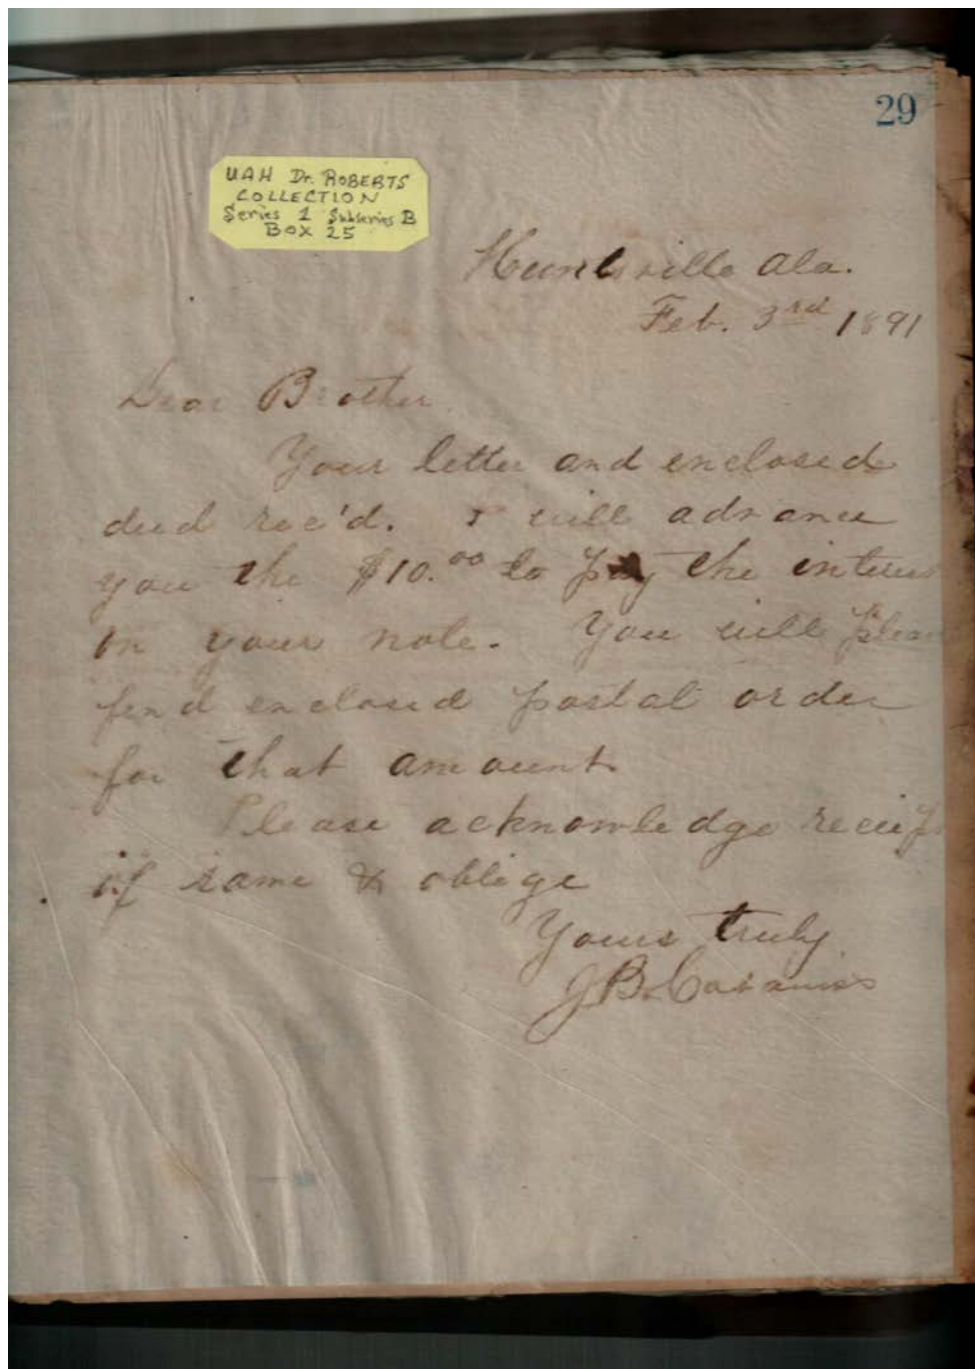 29
UAH Dr. ROBERTS
COLLECTION
Series 1 Subseries B
BOX 25
Huntsville Ala.
Feb. 3rd 1891
Dear Brother
Your letter and enclosed
deed rec'd. I will advance
you the $10.00 to pay the interes
on your note. You will pleas
find enclosed postal order
for that amount.
Please acknowledge receip
of same & oblige
Yours truly
J B Cabaniss